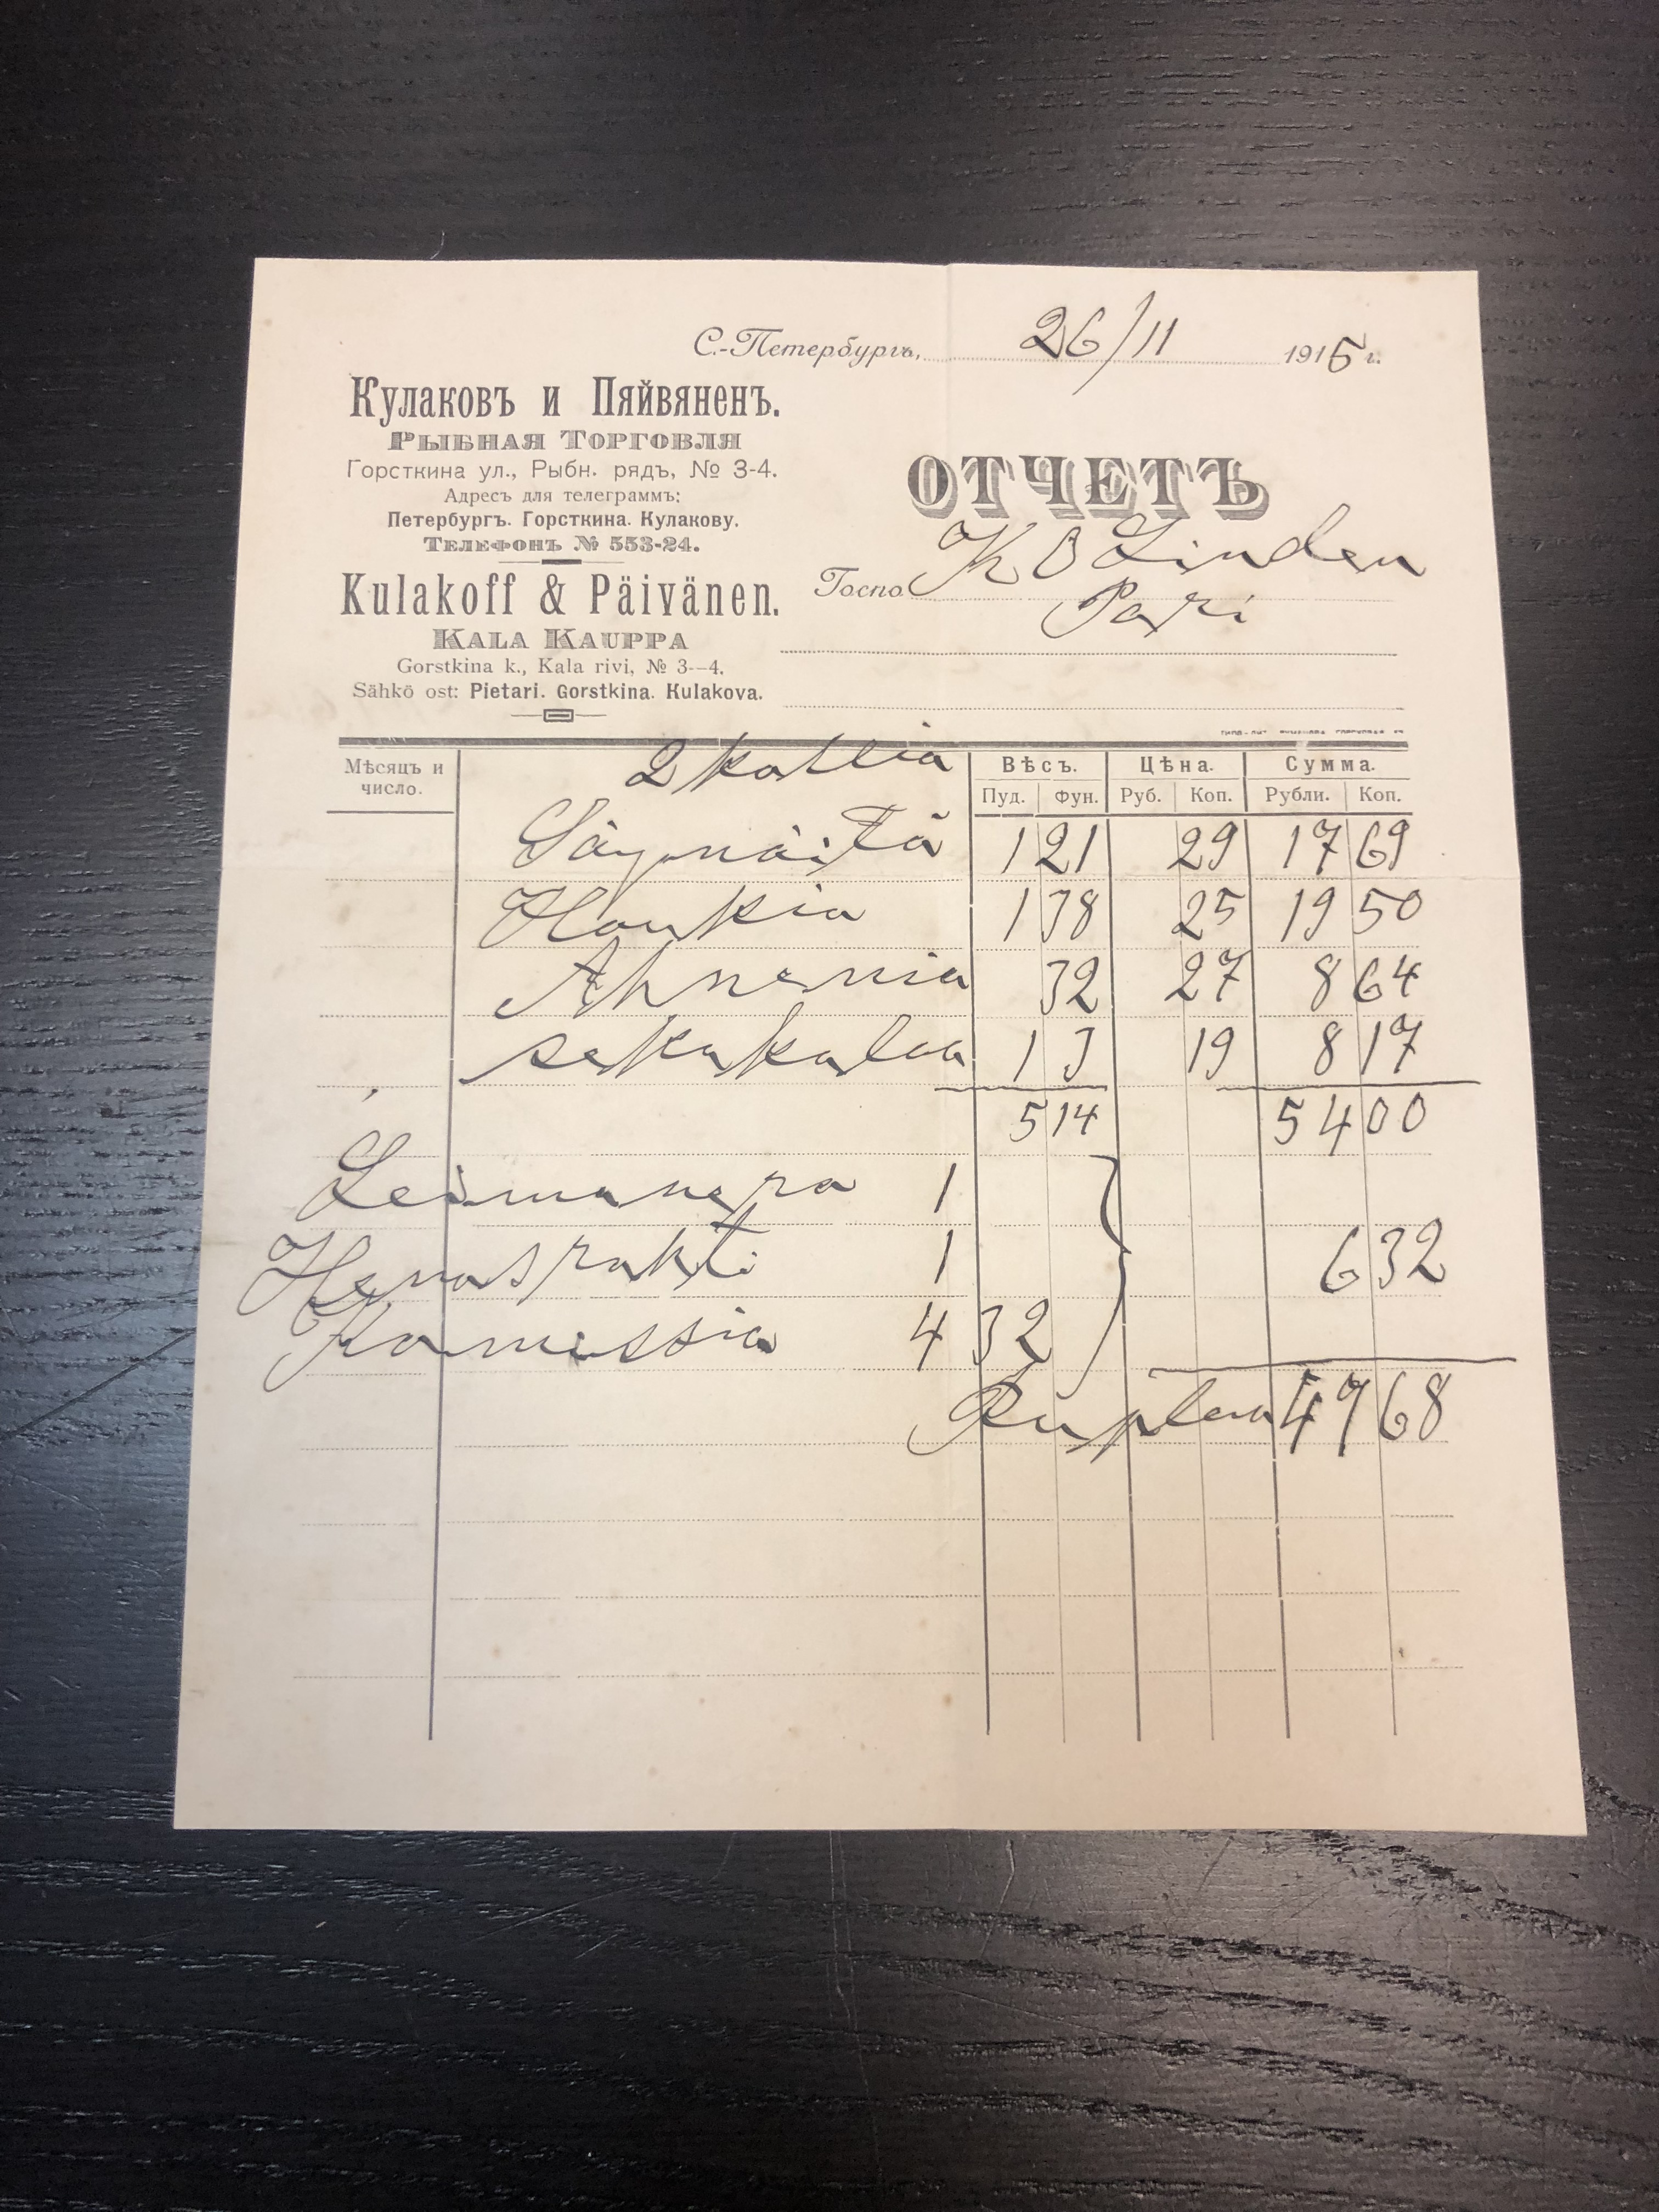 С.-Петербургъ, 26/11 1915 г.
Кулаковъ и Пяйвяненъ.
Рыбная Торговля
Горсткина ул., Рыбн. рядъ, № 3-4.
Адресъ для телеграммъ:
Петербургъ. Горсткина. Кулакову.
Телефонъ № 553-24.
Kulakoff & Päivänen.
Kala Kauppa
Gorstkina k., Kala rivi, № 3—4.
Sähkö ost: Pietari. Gorstkina. Kulakova.
ОТЧЕТЪ
Госпо K O Linden
Pari
Мѣсяцъ и число. Вѣсъ. Цѣна. Сумма.
Пуд. Фун. Руб. Коп. Рубли. Коп.
2 kollia
Säynäitä 1 21 29 17 69
Haukia 1 38 25 19 50
Ahvenia 32 27 8 64
sekakalaa 1 3 19 8 17
5 14 54 00
1
1 6 32
Komissia 4 32
Ruplaa 47 68